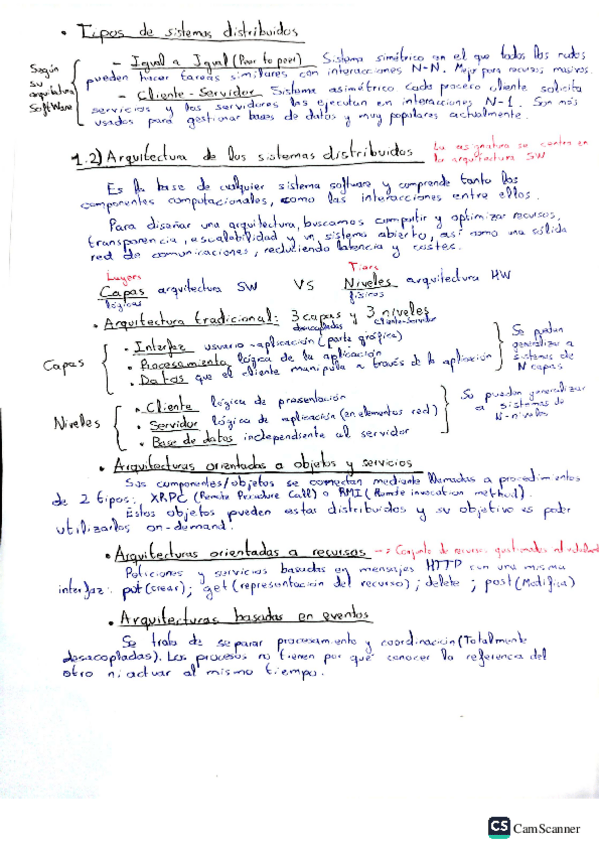 • Tipos de sistemas distribuidos
Según su arquitectura SoftWare
- Igual a Igual (Peer to peer) Sistema simétrico en el que todos los nodos
pueden hacer tareas similares con interacciones N-N. Mejor para recursos masivos.
- Cliente - Servidor Sistema asimétrico cada proceso cliente solicita
servicios y los servidores las ejecutan en interacciones N-1. Son más
usados para gestionar bases de datos y muy populares actualmente.
1.2) Arquitectura de los sistemas distribuidos La asignatura se centra en
la arquitectura SW
Es la base de cualquier sistema software y comprende tanto los
componentes computacionales, como las interacciones entre ellos.
Para diseñar una arquitectura, buscamos compartir y optimizar recursos,
transparencia, escalabilidad y un sistema abierto, así como una sólida
red de comunicaciones, reduciendo latencia y costes.
Layers Tiers
Capas arquitectura SW VS Niveles arquitectura HW
lógicas físicos
• Arquitectura tradicional: 3 capas y 3 niveles
desacopladas cliente-servidor
Capas
• Interfaz usuario-aplicación (parte gráfica)
• Procesamiento lógica de la aplicación
• Datos que el cliente manipula a través de la aplicación
Se pueden generalizar a sistemas de N capas
Niveles
• Cliente lógica de presentación
• Servidor lógica de aplicación (en elementos red)
• Base de datos independiente al servidor
Se pueden generalizar a sistemas de N-niveles
• Arquitecturas orientadas a objetos y servicios
Sus componentes/objetos se conectan mediante llamadas a procedimientos
de 2 tipos: XRPC (Remote Procedure Call) o RMI (Remote invocation method).
Estos objetos pueden estar distribuidos y su objetivo es poder
utilizarlos on-demand.
• Arquitecturas orientadas a recursos --> Conjunto de recursos gestionados
Peticiones y servicios basadas en mensajes HTTP con una misma
interfaz: put (crear); get (representación del recurso); delete; post (Modifica)
• Arquitecturas basadas en eventos
Se trata de separar procesamiento y coordinación (Totalmente
desacopladas). Los procesos no tienen por qué conocer la referencia del
otro ni actuar al mismo tiempo.
CS CamScanner